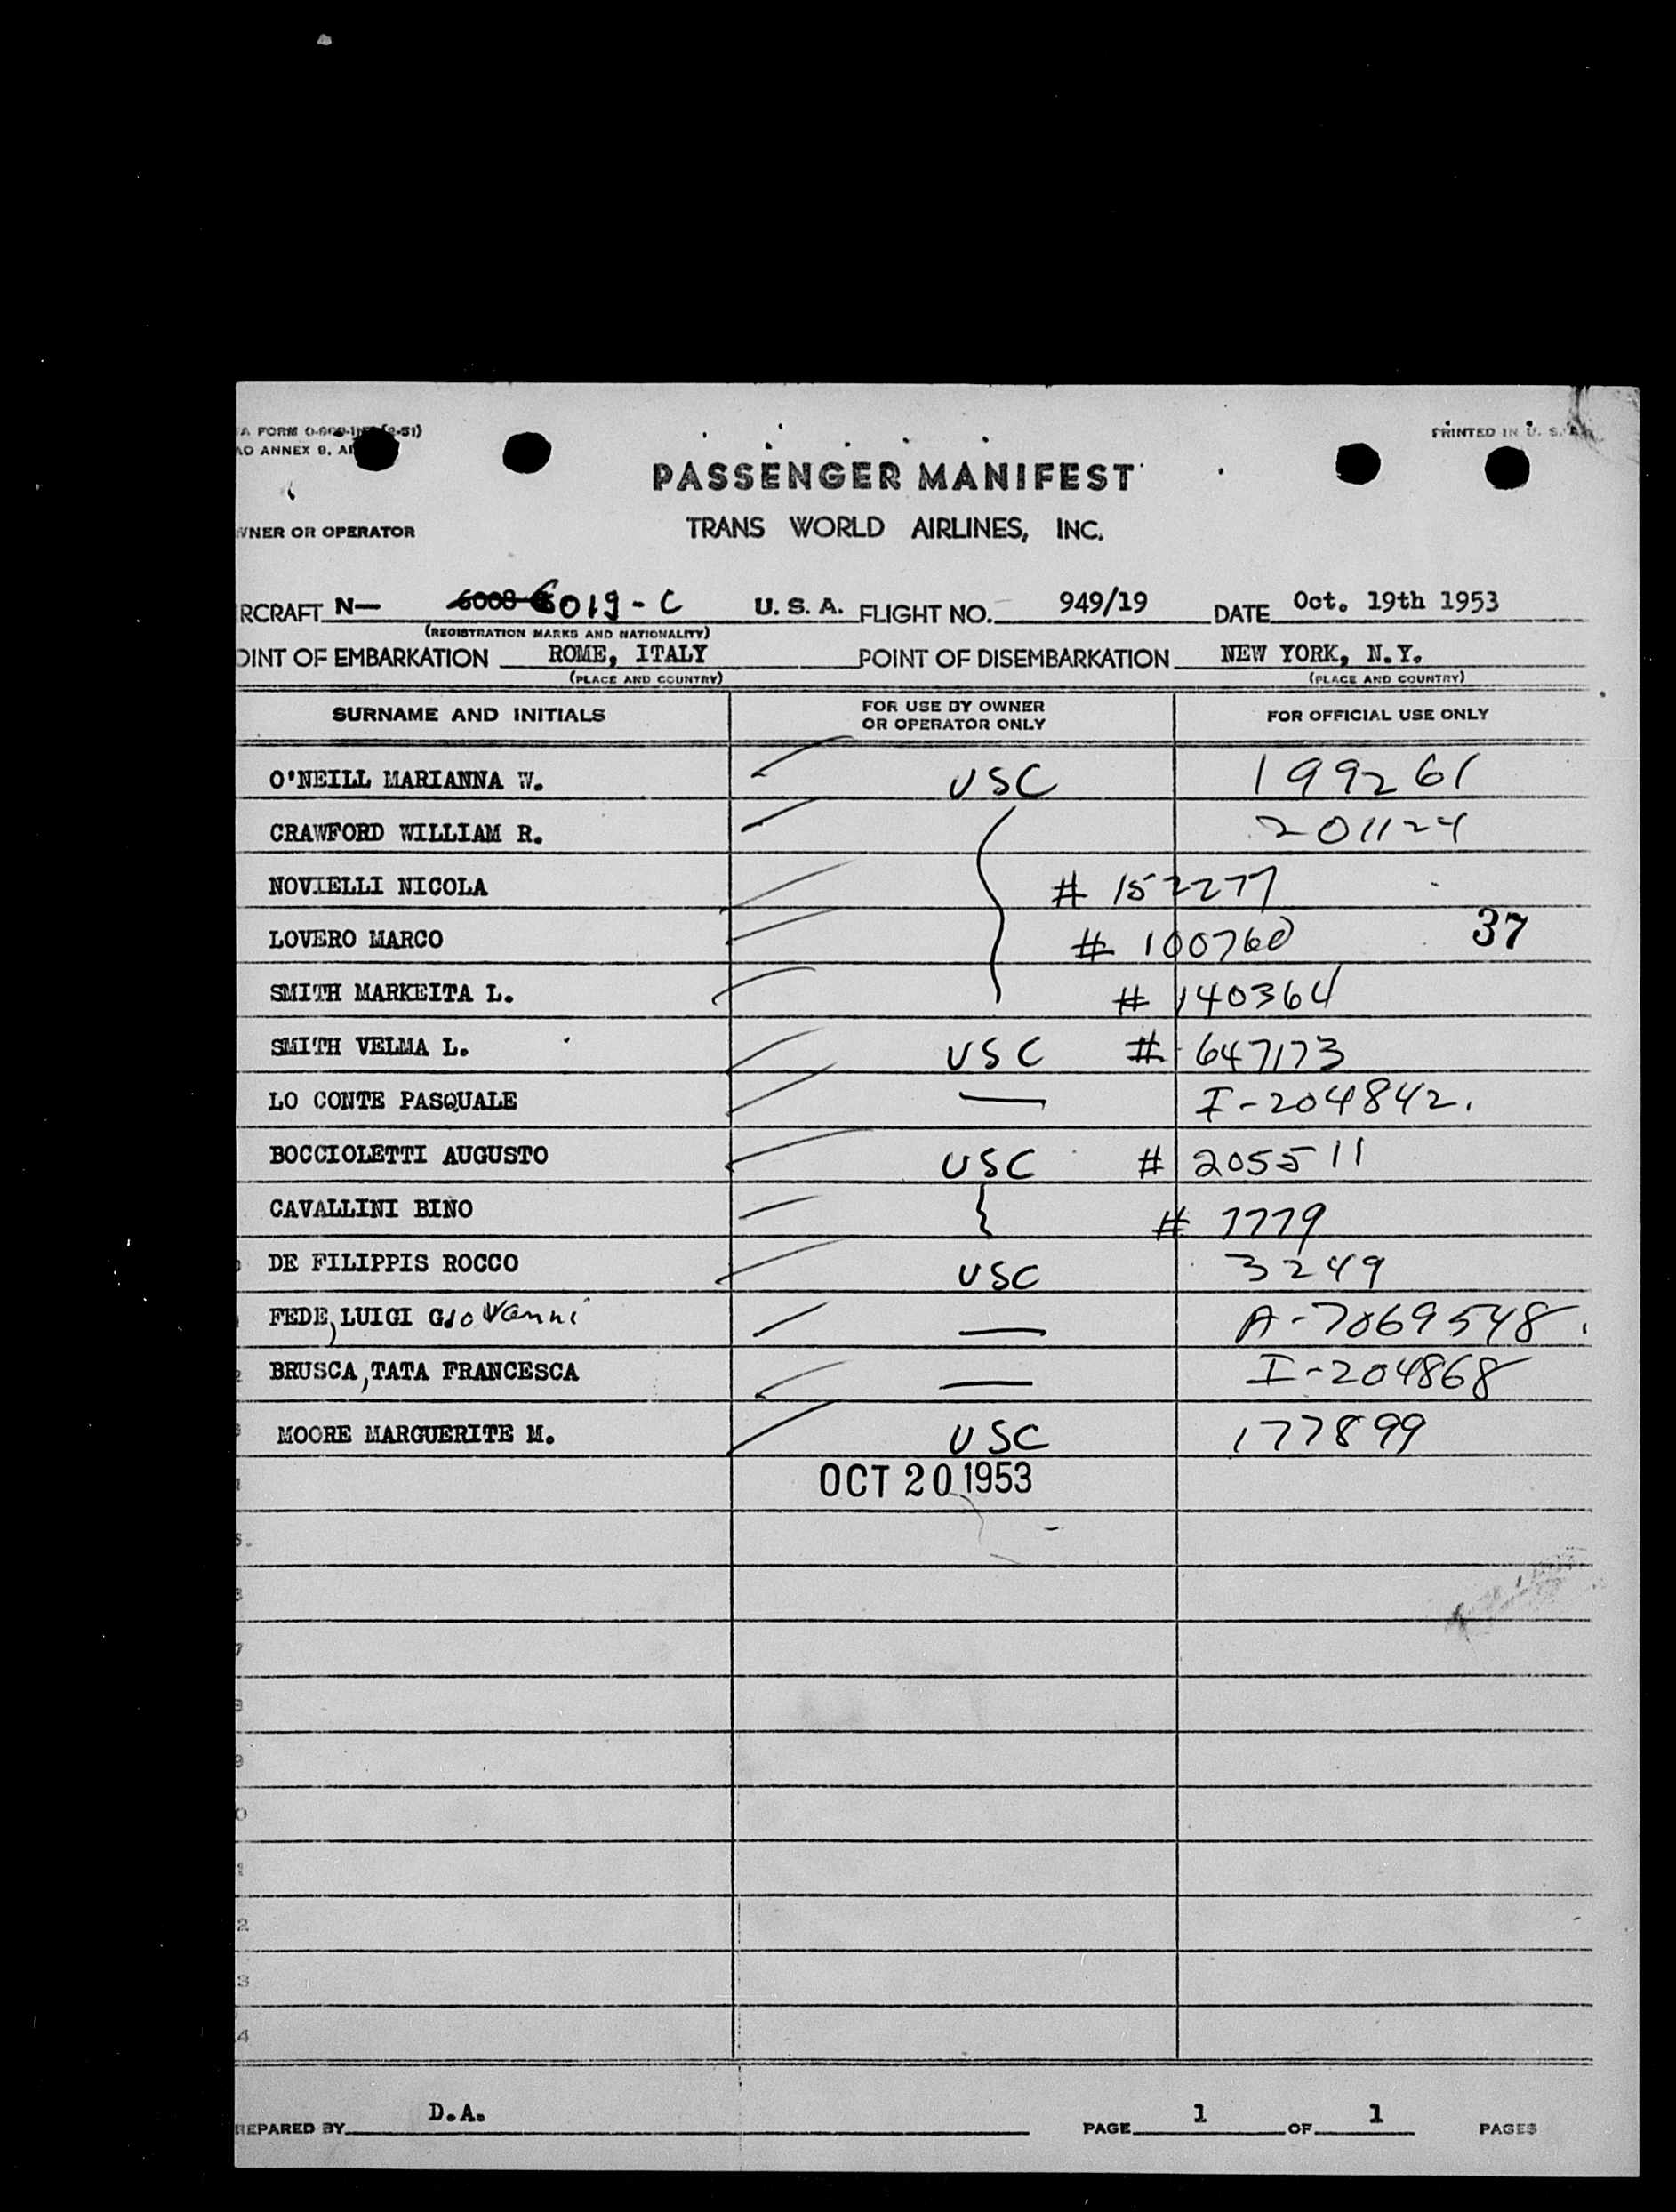 A FORM O-
AO ANNEX 9, A
PRINTED IN U. S. A.
PASSENGER MANIFEST
WNER OR OPERATOR
TRANS WORLD AIRLINES, INC.
RCRAFT N— 6008 6019-C U. S. A. FLIGHT NO. 949/19 DATE Oct. 19th 1953
(REGISTRATION MARKS AND NATIONALITY)
OINT OF EMBARKATION ROME, ITALY POINT OF DISEMBARKATION NEW YORK, N.Y.
(PLACE AND COUNTRY) (PLACE AND COUNTRY)
SURNAME AND INITIALS FOR USE BY OWNER OR OPERATOR ONLY FOR OFFICIAL USE ONLY
O'NEILL MARIANNA W. USC 199261
CRAWFORD WILLIAM R. 201124
NOVIELLI NICOLA # 152277
LOVERO MARCO # 100760 37
SMITH MARKEITA L. # 140364
SMITH VELMA L. USC # 647173
LO CONTE PASQUALE — I-204842.
BOCCIOLETTI AUGUSTO USC # 205511
CAVALLINI BINO # 7779
DE FILIPPIS ROCCO USC 3249
FEDE, LUIGI Giovanni — A-7069548.
BRUSCA, TATA FRANCESCA — I-204868
MOORE MARGUERITE M. USC 177899
OCT 20 1953
5.
7
9
0
1
2
3
4
REPARED BY D.A. PAGE 1 OF 1 PAGES